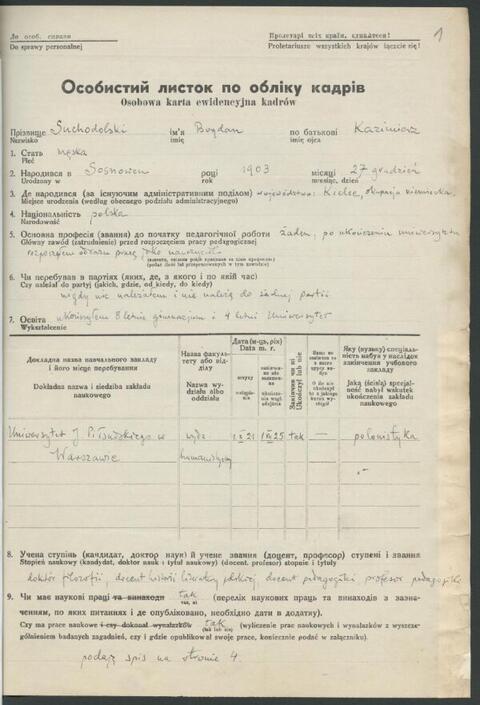 До особ. справи
Do sprawy personalnej
Пролетарі всіх країн, єднайтеся!
Proletariusze wszystkich krajów łączcie się!
1
Особистий листок по обліку кадрів
Osobowa karta ewidencyjna kadrów
Прізвище Suchodolski ім'я Bogdan по батькові Kazimierz
Nazwisko imię imię ojca
1. Стать męska
Płeć
2. Народився в Sosnowcu році 1903 місяці 27 grudzień
Urodzony w rok miesiąc, dzień
3. Де народився (за існуючим адміністративним поділом) województwo: Kielce, okupacja niemiecka.
Miejsce urodzenia (według obecnego podziału administracyjnego)
4. Національність polska
Narodowość
5. Основна професія (звання) до початку педагогічної роботи żaden, po ukończeniu uniwersytetu
Główny zawód (zatrudnienie) przed rozpoczęciem pracy pedagogicznej
rozpocząłem od razu pracę jako nauczyciel
6. Чи перебував в партіях (яких, де, з якого і по якій час)
Czy należał do partyj (jakich, gdzie, od kiedy, do kiedy)
nigdy nie należałem i nie należę do żadnej partii
7. Освіта ukończyłem 8 letnie gimnazjum i 4 letni Uniwersytet
Wykształcenie
Докладна назва навчального закладу і його місце перебування
Dokładna nazwa i siedziba zakładu naukowego
Назва факультету або відділу
Nazwa wydziału albo oddziału
Дата (м-ць, рік)
Data m. r.
вступу
Закінчив чи ні
Ukończył lub nie
Яку (вузьку) спеціальність набув у наслідок закінчення учбового закладу
Jaką (ścisłą) specjalność nabył wskutek ukończenia zakładu naukowego
Uniwersytet J Piłsudskiego w wydz. 1 IX 21 1 VI 25 tak — polonistyka
Warszawie humanistyczny
8. Учена ступінь (кандидат, доктор наук) й учене звання (доцент, професор) ступені і звання
Stopień naukowy (kandydat, doktor nauk i tytuł naukowy) (docent, profesor) stopnie i tytuły
doktór filozofii, docent historii literatury polskiej, docent pedagogiki, profesor pedagogiki
9. Чи має наукові праці та винаходи tak (перелік наукових праць та винаходів з зазна-
так, ні
ченням, по яких питаннях і де опубліковано, необхідно дати в додатку).
Czy ma prace naukowe i czy dokonał wynalazków tak (wyliczenie prac naukowych i wynalazków z wyszcze-
(tak lub nie)
gólnieniem badanych zagadnień, czy i gdzie opublikował swoje prace, koniecznie podać w załączniku).
podaję spis na stronie 4.